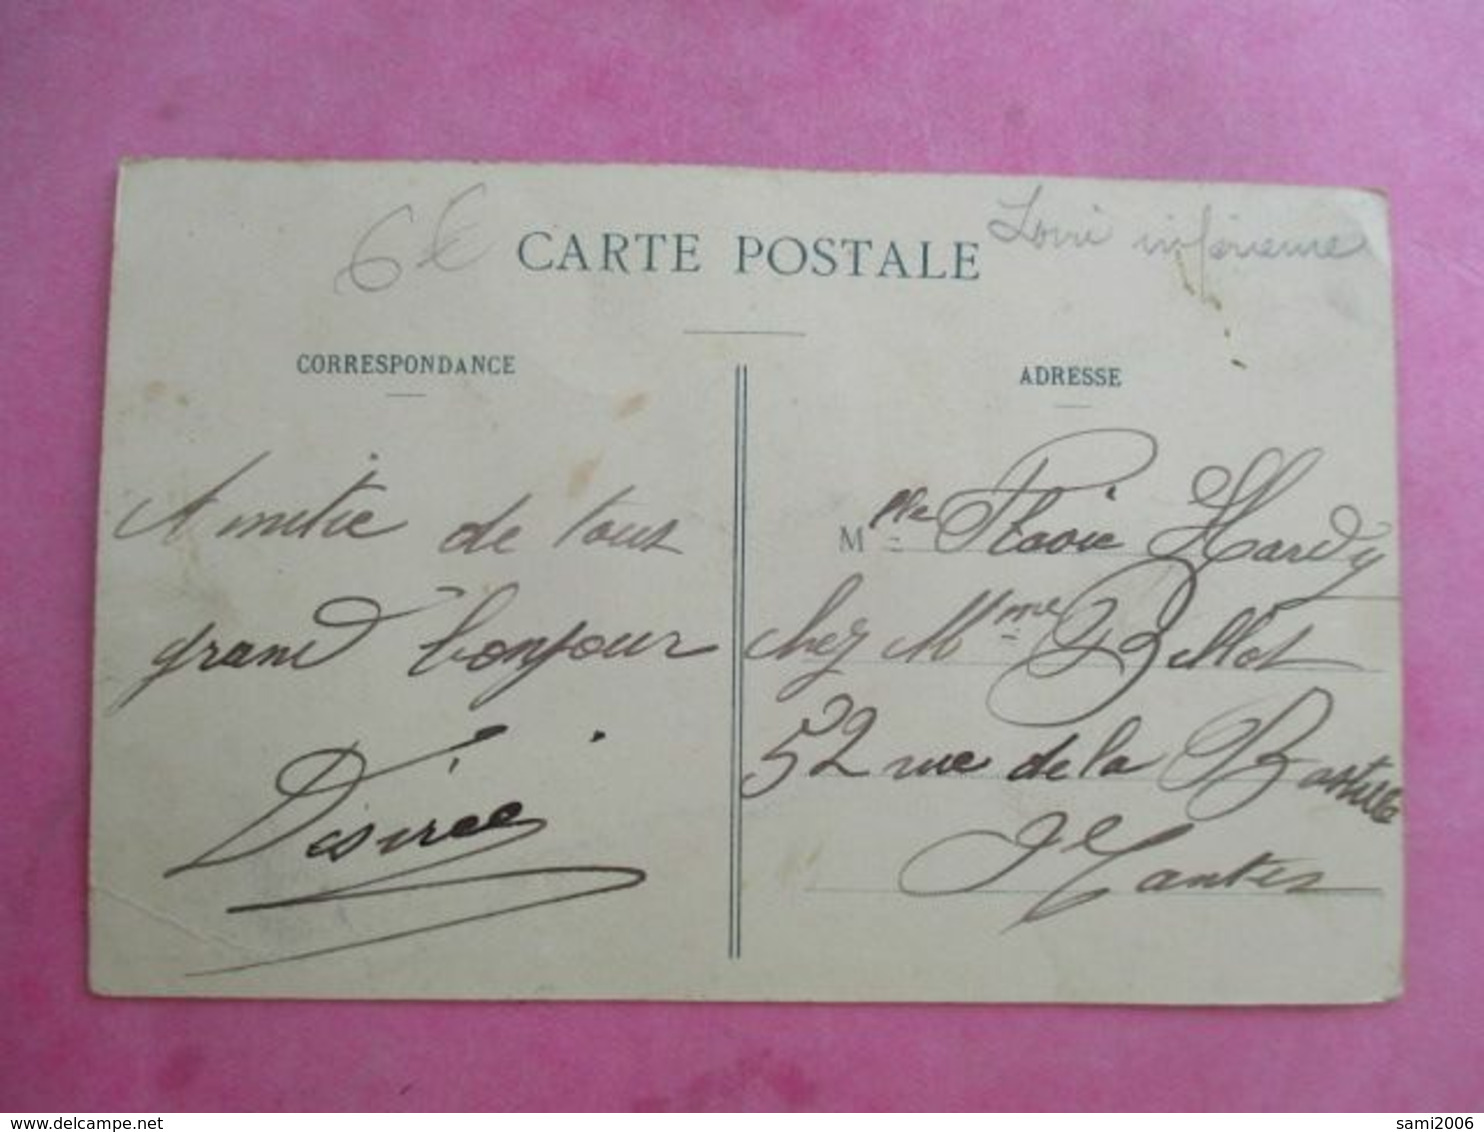 6€
Loire inférieure
CARTE POSTALE
CORRESPONDANCE
Amitié de tous
grand bonjour
Désirée
ADRESSE
Mlle Flavie Hardy
chez Mme Bellot
52 rue de la Bastille
Nantes
www.delcampe.net
sami2006